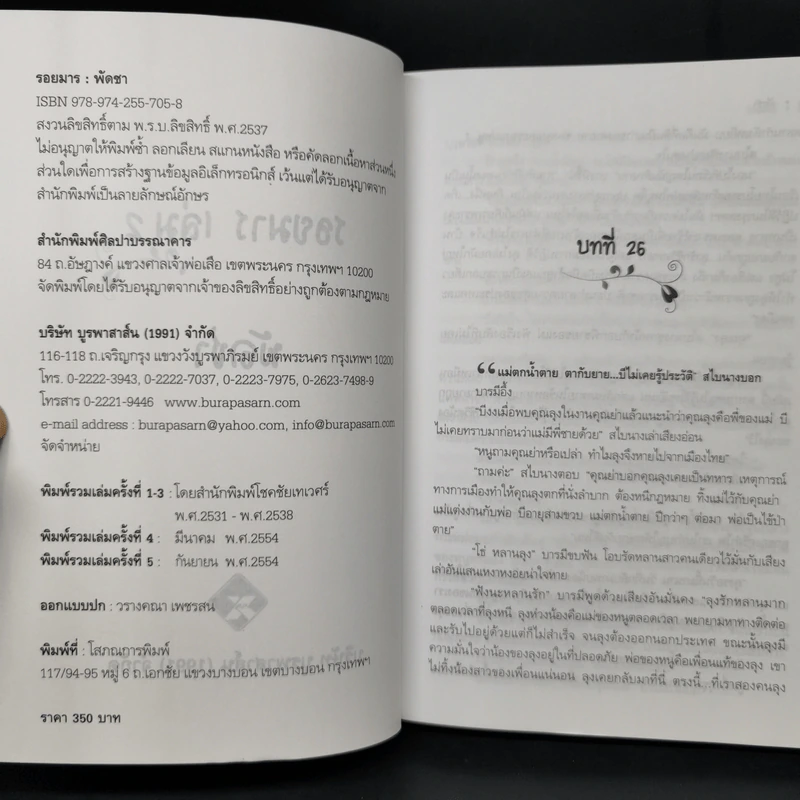 รอยมาร : พัดชา
ISBN 978-974-255-705-8
สงวนลิขสิทธิ์ตาม พ.ร.บ.ลิขสิทธิ์ พ.ศ.2537
ไม่อนุญาตให้พิมพ์ซ้ำ ลอกเลียน สแกนหนังสือ หรือคัดลอกเนื้อหาส่วนหนึ่ง
ส่วนใดเพื่อการสร้างฐานข้อมูลอิเล็กทรอนิกส์ เว้นแต่ได้รับอนุญาตจาก
สำนักพิมพ์เป็นลายลักษณ์อักษร
สำนักพิมพ์ศิลปาบรรณาคาร
84 ถ.อัษฎางค์ แขวงศาลเจ้าพ่อเสือ เขตพระนคร กรุงเทพฯ 10200
จัดพิมพ์โดยได้รับอนุญาตจากเจ้าของลิขสิทธิ์อย่างถูกต้องตามกฎหมาย
บริษัท บูรพาสาส์น (1991) จำกัด
116-118 ถ.เจริญกรุง แขวงวังบูรพาภิรมย์ เขตพระนคร กรุงเทพฯ 10200
โทร. 0-2222-3943, 0-2222-7037, 0-2223-7975, 0-2623-7498-9
โทรสาร 0-2221-9446 www.burapasarn.com
e-mail address : burapasarn@yahoo.com, info@burapasarn.com
จัดจำหน่าย
พิมพ์รวมเล่มครั้งที่ 1-3 : โดยสำนักพิมพ์โชคชัยเทเวศร์
พ.ศ.2531 - พ.ศ.2538
พิมพ์รวมเล่มครั้งที่ 4 : มีนาคม พ.ศ.2554
พิมพ์รวมเล่มครั้งที่ 5 : กันยายน พ.ศ.2554
ออกแบบปก : วรางคณา เพชรสน
พิมพ์ที่ : โสภณการพิมพ์
117/94-95 หมู่ 6 ถ.เอกชัย แขวงบางบอน เขตบางบอน กรุงเทพฯ
ราคา 350 บาท
บทที่ 26
“แม่ตกน้ำตาย ตากับยาย...บีไม่เคยรู้ประวัติ” สไบนางบอก
บารมีอึ้ง
“บีงงเมื่อพบคุณลุงในงานคุณย่าแล้วแนะนำว่าคุณลุงคือพี่ของแม่ บี
ไม่เคยทราบมาก่อนว่าแม่มีพี่ชายด้วย” สไบนางเล่าเสียงอ่อน
“หนูถามคุณย่าหรือเปล่า ทำไมลุงจึงหายไปจากเมืองไทย”
“ถามค่ะ” สไบนางตอบ “คุณย่าบอกคุณลุงเคยเป็นทหาร เหตุการณ์
ทางการเมืองทำให้คุณลุงตกที่นั่งลำบาก ต้องหนีกฎหมาย ทิ้งแม่ไว้กับคุณย่า
แม่แต่งงานกับพ่อ บีอายุสามขวบ แม่ตกน้ำตาย ปีกว่าๆ ต่อมา พ่อเป็นไข้ป่า
ตาย”
“โธ่ หลานลุง” บารมีขบฟัน โอบรัดหลานสาวคนเดียวไว้มั่นกับเสียง
เล่าอันแสนเหงาหงอยน่าใจหาย
“ฟังนะหลานรัก” บารมีพูดด้วยเสียงอันมั่นคง “ลุงรักหลานมาก
ตลอดเวลาที่ลุงหนี ลุงห่วงน้องคือแม่ของหนูตลอดเวลา พยายามหาทางติดต่อ
และรับไปอยู่ด้วยแต่ก็ไม่สำเร็จ จนลุงต้องออกนอกประเทศ ขณะนั้นลุงมี
ความมั่นใจว่าน้องของลุงอยู่ในที่ปลอดภัย พ่อของหนูคือเพื่อนแท้ของลุง เขา
ไม่ทิ้งน้องสาวของเพื่อนแน่นอน ลุงเคยกลับมาที่นี่ ตรงนี้...ที่เราสองคนลุง